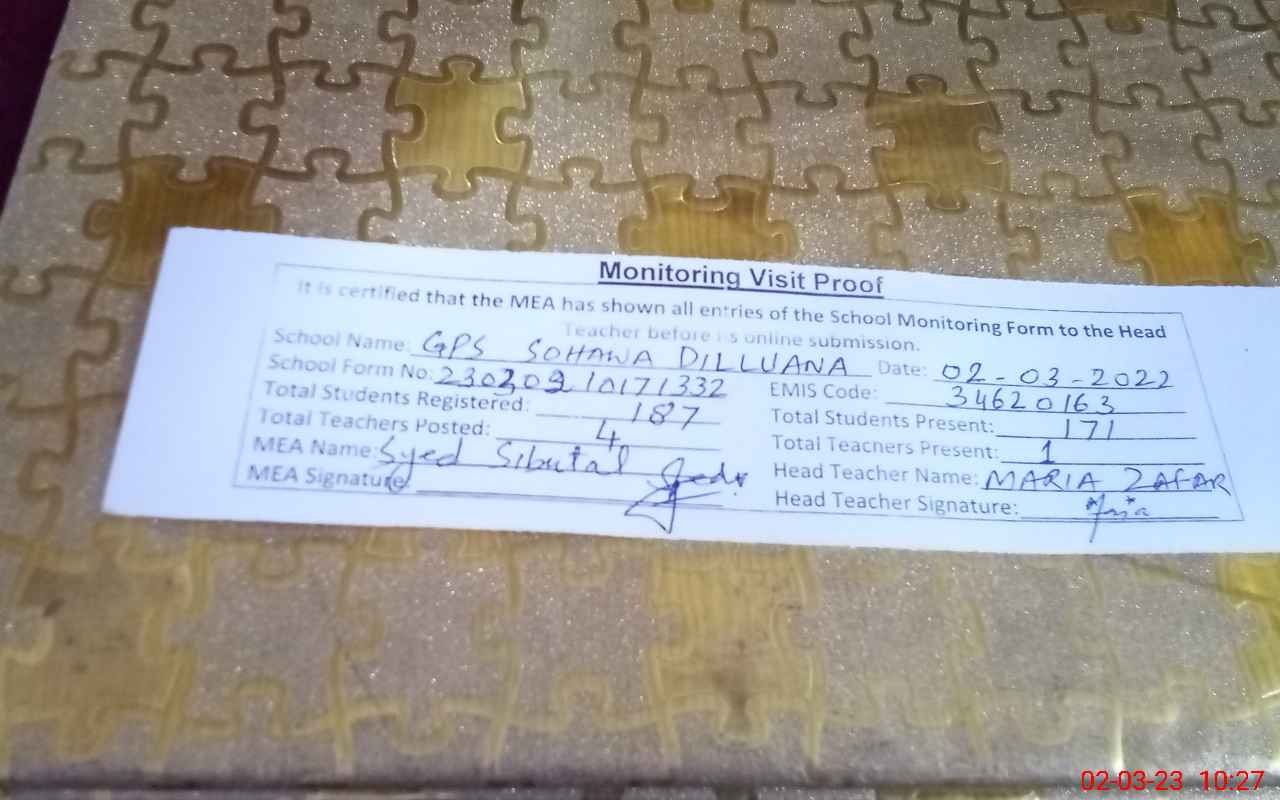 Monitoring Visit Proof
It is certified that the MEA has shown all entries of the School Monitoring Form to the Head
Teacher before its online submission.
School Name: GPS SOHAWA DILLUANA Date: 02-03-2022
School Form No: 23030210171332 EMIS Code: 34620163
Total Students Registered: 187 Total Students Present: 171
Total Teachers Posted: 4 Total Teachers Present: 1
MEA Name: Syed Sibutal Head Teacher Name: MARIA ZAFAR
MEA Signature: Head Teacher Signature:
02-03-23 10:27